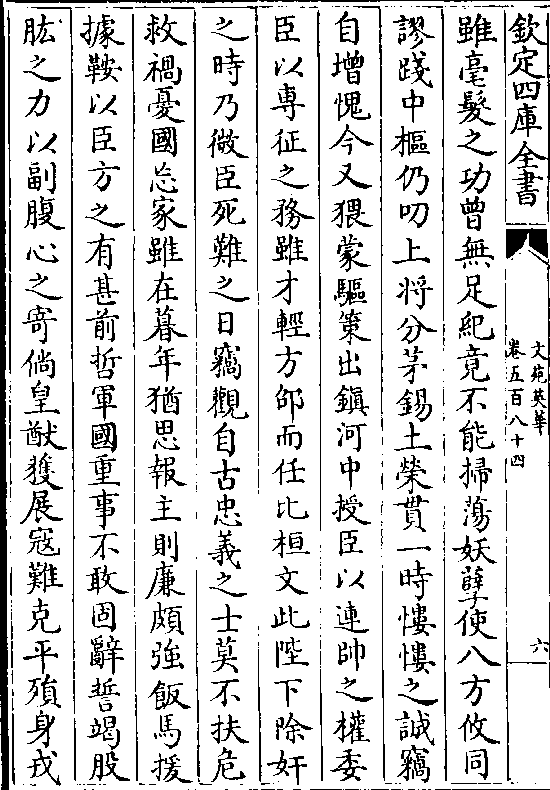 欽定四庫全書
文苑英華
卷五百八十四
六
雖毫髮之功曾無足紀竟不能掃蕩妖孽使八方攸同
謬踐中樞仍叨上將分茅錫土榮貫一時悽悽之誠竊
自增愧今又猥蒙驅策出鎮河中授臣以連帥之權委
臣以専征之務雖才輕方邵而任比桓文此陛下除奸
之時乃微臣死難之日竊觀自古忠義之士莫不扶危
救禍憂國忘家雖在暮年猶思報主則廉頗強飯馬援
據鞍以臣方之有甚前哲軍國重事不敢固辭誓竭股
肱之力以副腹心之寄倘皇猷獲展寇難克平殞身戎